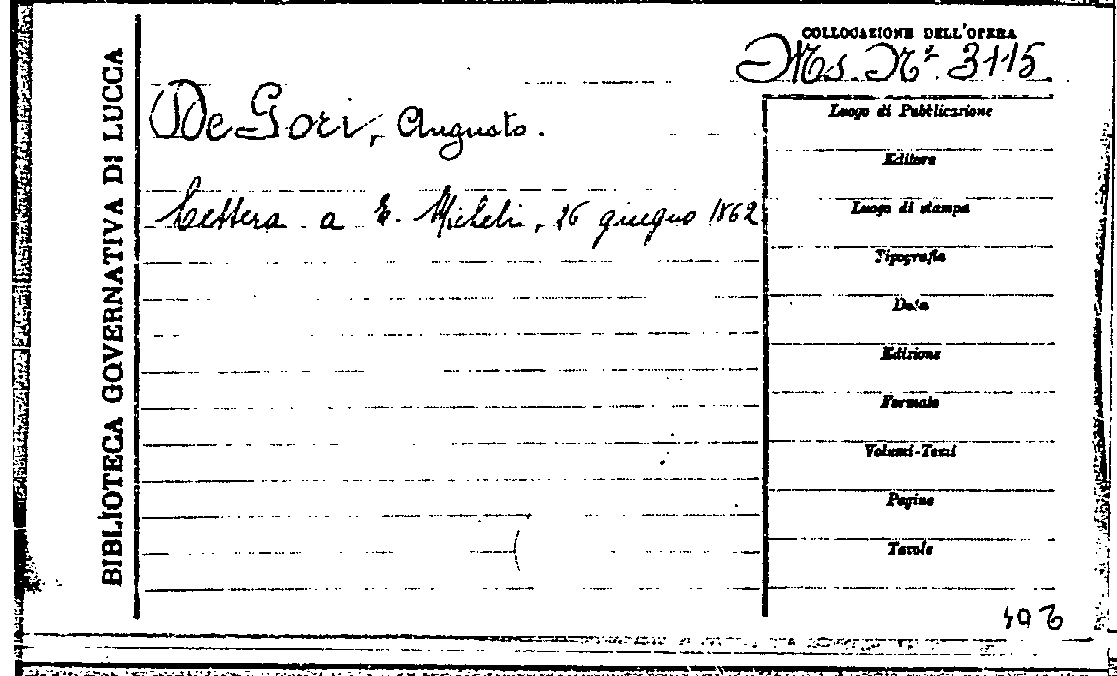 COLLOCAZIONE DELL'OPERA
Ms. Nº 3115
BIBLIOTECA GOVERNATIVA DI LUCCA
De Gori, Augusto.
Lettera a E. Micheli, 26 giugno 1862
Luogo di Pubblicazione
Editore
Luogo di stampa
Tipografia
Data
Edizione
Formato
Volumi-Tomi
Pagine
Tavole